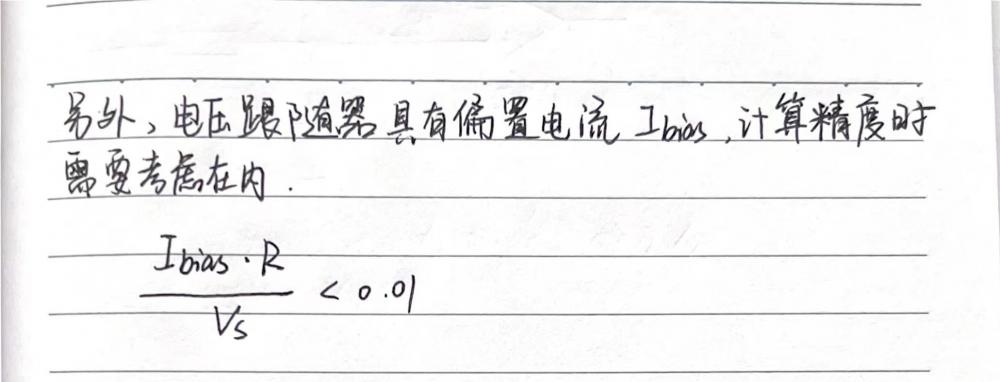 另外，电压跟随器具有偏置电流 Ibias，计算精度时
需要考虑在内．
Ibias · R
Vs
< 0.01